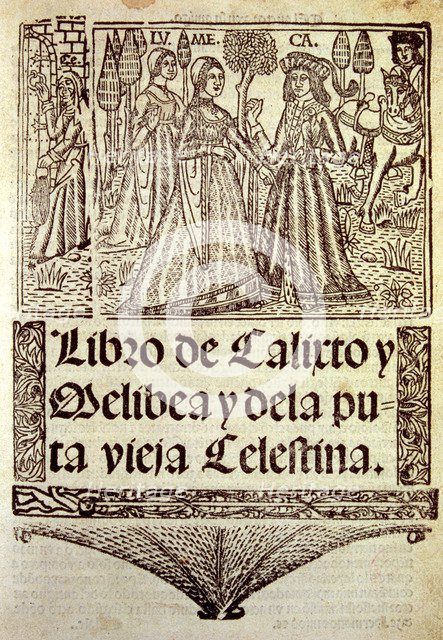 LV. ME. CA.
Libro de Calixto y
Melibea y dela pu=
ta vieja Celestina.